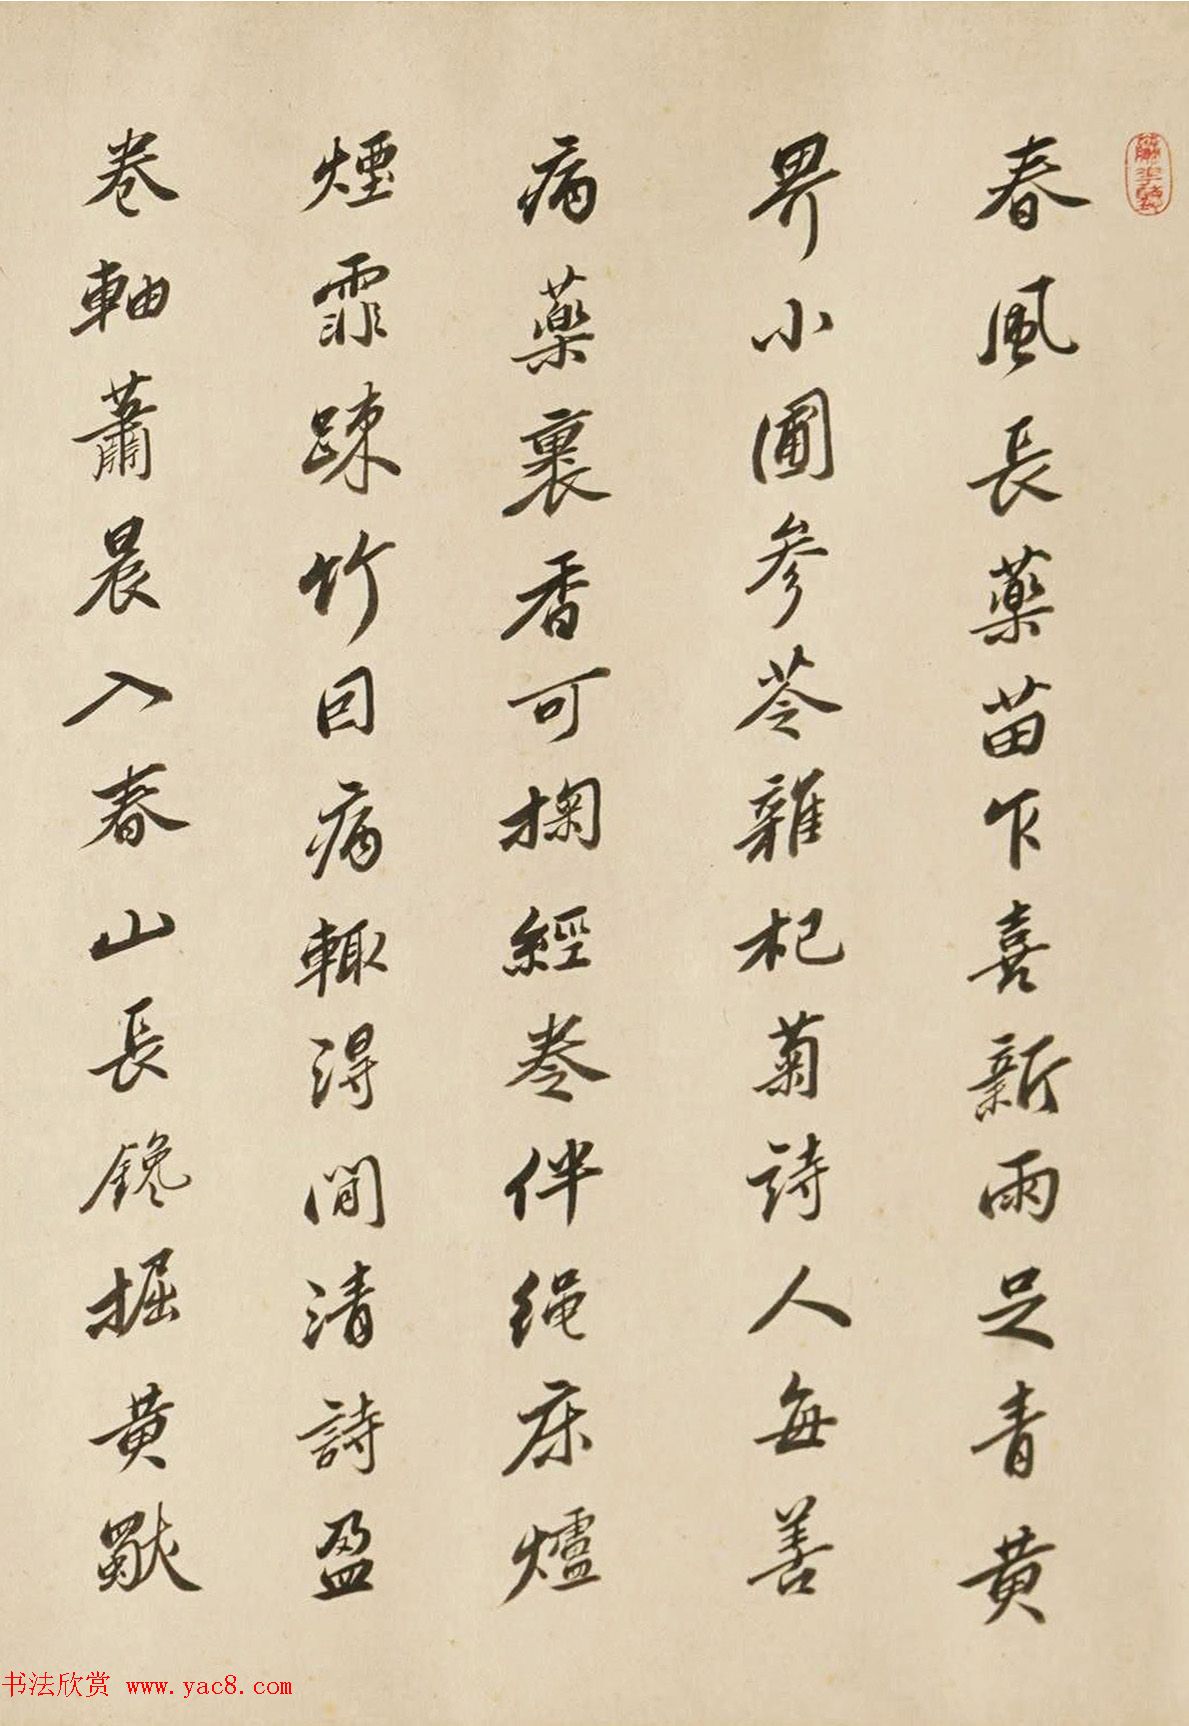 春風長藥苗乍喜新雨足青黄
界小圃參苓雜杞菊詩人每善
病藥裹香可掬經卷伴繩床爐
煙霏疎竹因病輒得閒清詩盈
卷軸蕭晨入春山長鑱掘黄獨
书法欣赏 www.yac8.com